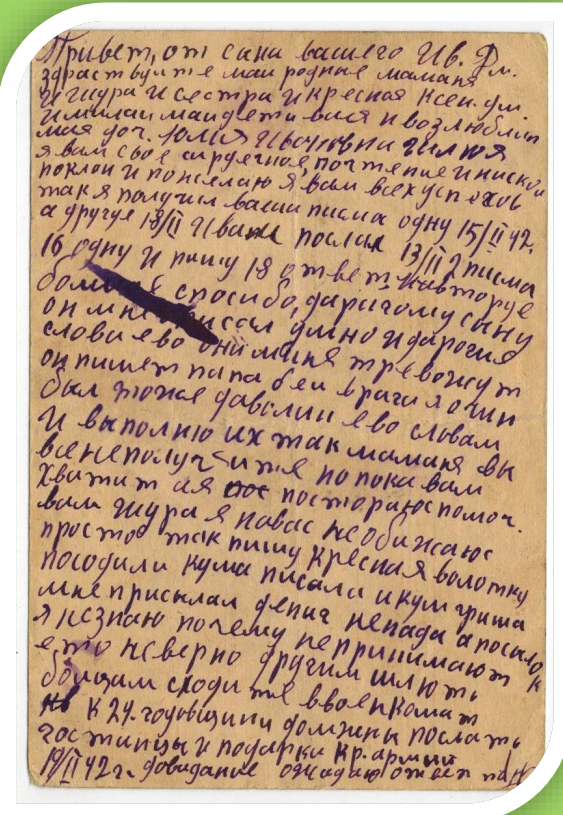 Привет, от сина вашего Ив. Фм.
здраствуйте маи родные маманя
и шура и сестра и кресная Ксен. Дм
и милаи маи дети вася и возлюблин
мая доч. Юлия Ивановна и шлю я
я вам свое сирдечное, почтение и ниской
поклон и пожелаю я, вам всех успехов
так я получил ваши писма одну 15/II 42.
а другуе 18/II И вам послал 13/II 2 писма
16 одну и пишу 18 ответ. на вторуе
болшое спосибо, дарагому сыну
он мне писал умно и дарогия
слова ево они миня тревожут
он пишет папа беи врага я очин
был тоже даволин ево словам
и выполню их так маманя вы
все не получите по пока вам
хватит а я пос постораюс помоч.
вам шура я на вас не обижаюс
простов так пишу кресная волотку
посодили кума писала и кум гриша
мне присылал дениг ненада а посылок
я незнаю почему непринимают к
ето неверно другим шлють
боицам сходите ввоенкомат
нв к 24. годовщини должны послать
гостинцы и подарки Кр. армии
19/II 42 г. довидание ожидаю ответ